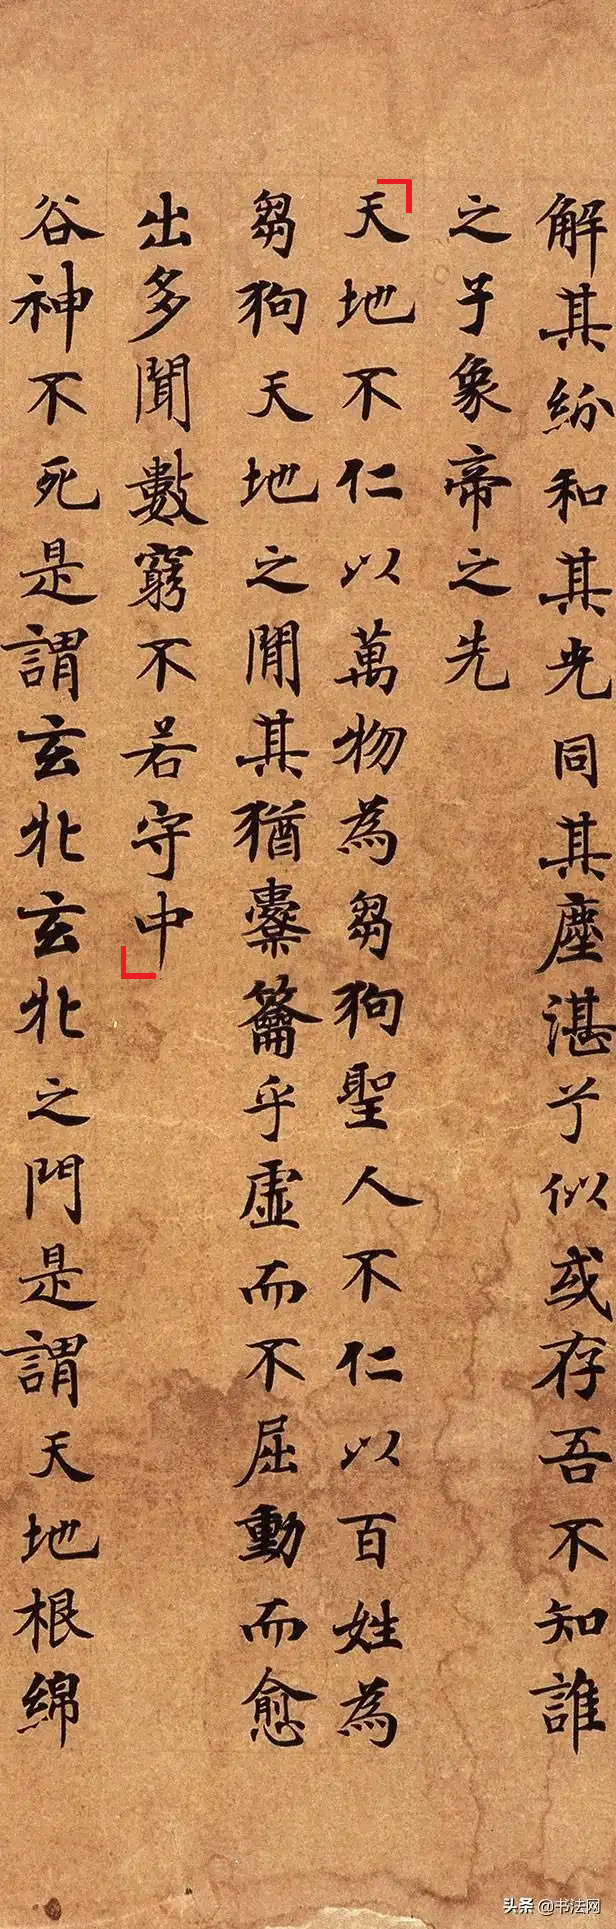 解其紛和其光同其塵湛兮似或存吾不知誰
之子象帝之先
天地不仁以萬物為芻狗聖人不仁以百姓為
芻狗天地之間其猶橐籥乎虛而不屈動而愈
出多聞數窮不若守中
谷神不死是謂玄牝玄牝之門是謂天地根綿
头条 @书法网